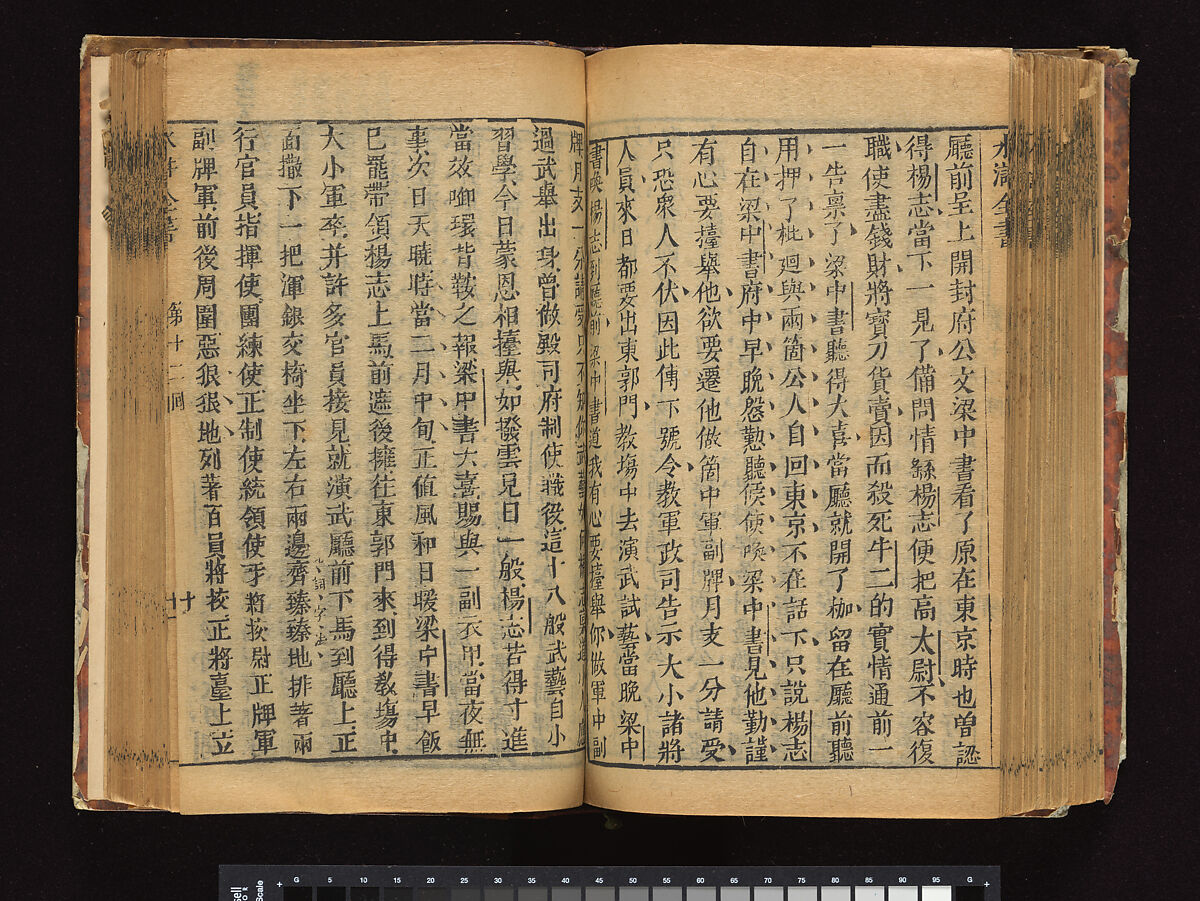 水滸全書
廳前呈上開封府公文梁中書看了原在東京時也曽認
得楊志當下一見了備問情繇楊志便把高太尉不容復
職使盡錢財將寳刀貨賣因而殺死牛二的實情通前一
一告禀了梁中書聽得大喜當廳就開了枷留在廳前聽
用押了批廻與兩箇公人自回東京不在話下只説楊志
自在梁中書府中早晩慇懃聽候使喚梁中書見他勤謹
有心要擡舉他欲要遷他做箇中軍副牌月支一分請受
只恐衆人不伏因此傳下號令教軍政司告示大小諸將
人員來日都要出東郭門教塲中去演武試藝當晩梁中
書喚楊志到廳前梁中書道我有心要擡舉你做軍中副
牌月支一分請受只不知你武藝如何
過武舉出身曽做殿司府制使職役這十八般武藝自小
習學今日蒙恩相擡舉如撥雲見日一般楊志若得寸進
當效啣環背鞍之報梁中書大喜賜與一副衣甲當夜無
事次日天曉時當二月中旬正值風和日暖梁中書早飯
已罷帶領楊志上馬前遮後擁往東郭門來到得教塲中
大小軍卒并許多官員接見就演武廳前下馬到廳上正
面撒下一把渾銀交椅坐下左右兩邊齊臻臻地排著兩
行官員指揮使團練使正制使統領使牙將校尉正牌軍
副牌軍前後周圍惡狠狠地列著百員將校正將臺上立
水滸全書 第十二回 十
Scale
G 5 10 15 20 25 30 35 40 45 50 55 60 65 70 75 80 85 90 95 G